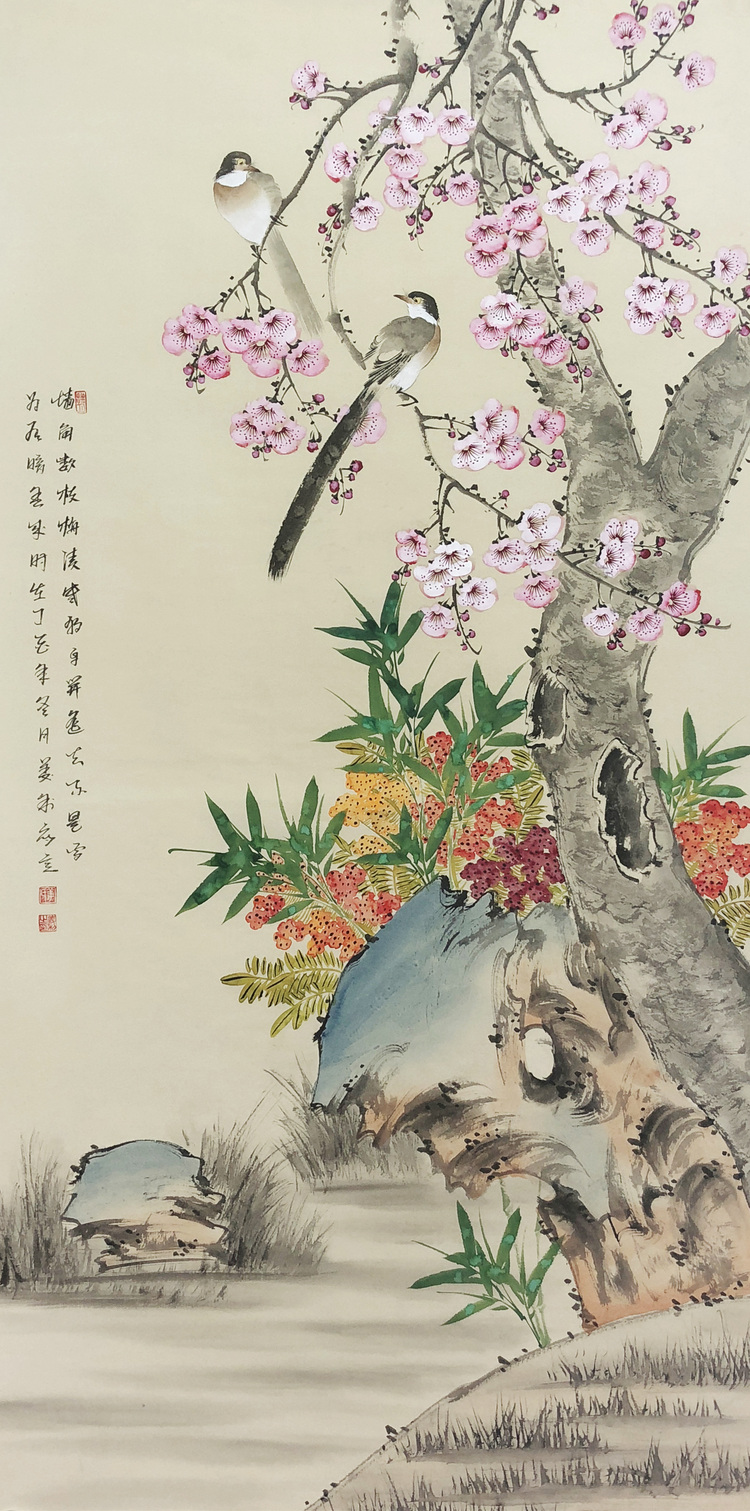 墙角数枝梅凌寒独自开遥知不是雪
为有暗香来时在丁酉年冬月姜